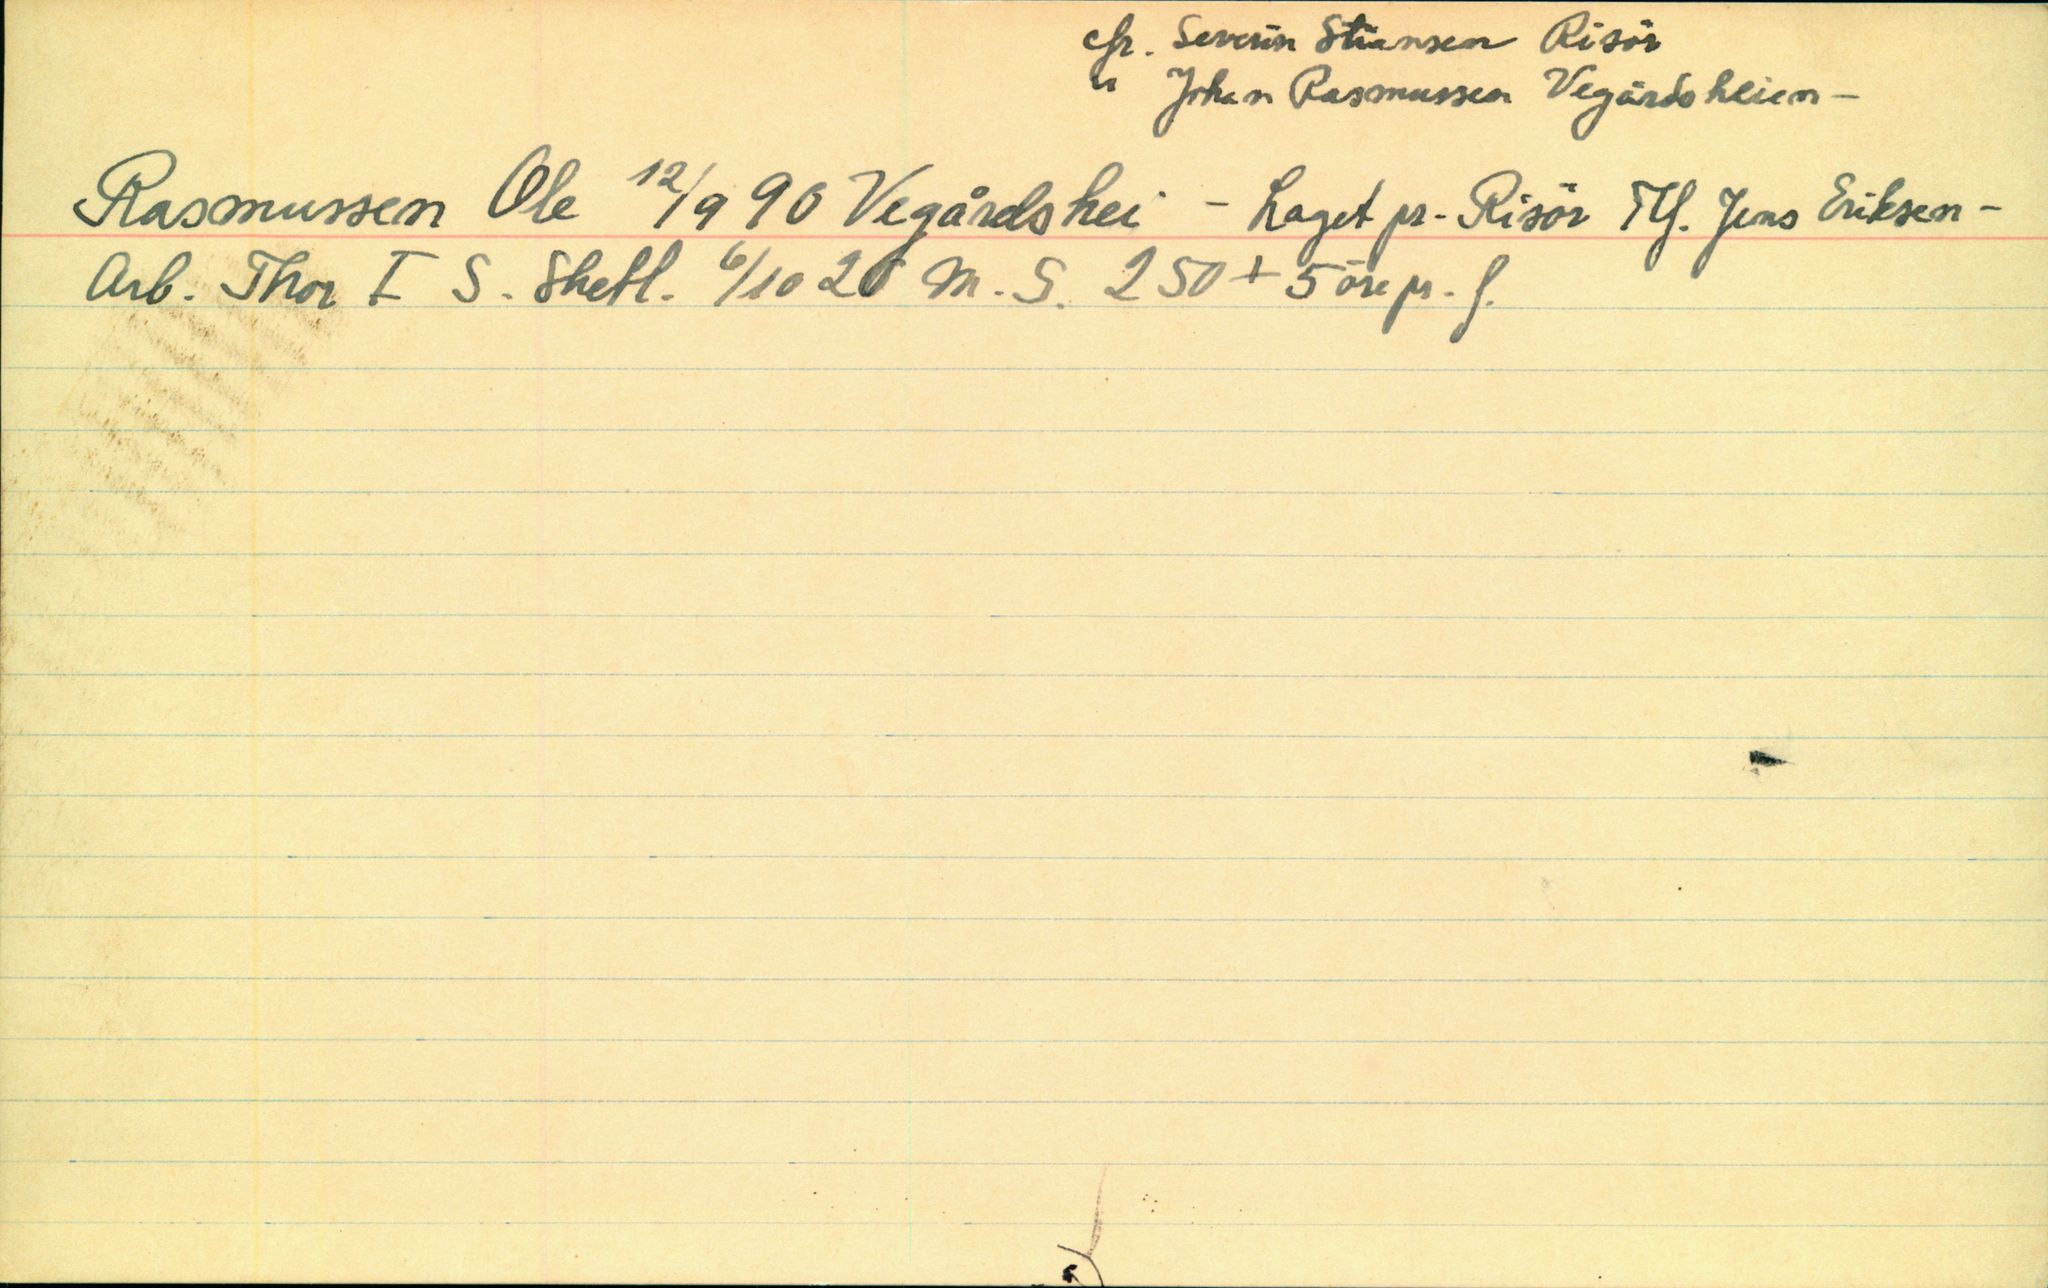 cfr. Severin Stiansen Risör
" Johan Rasmussen Vegårdsheien -
Rasmussen Ole 12/9 90 Vegårdshei - Laget pr. Risör Tlf. Jens Eriksen -
Arb. Thor I S. Shetl. 6/10 26 M. S. 250 + 5 öre pr. f.